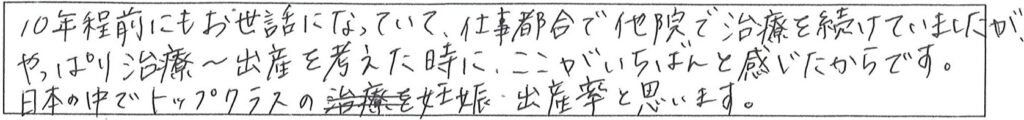 10年程前にもお世話になっていて、仕事都合で他院で治療を続けていましたが、
やっぱり治療〜出産を考えた時に、ここがいちばんと感じたからです。
日本の中でトップクラスの治療を妊娠・出産率と思います。